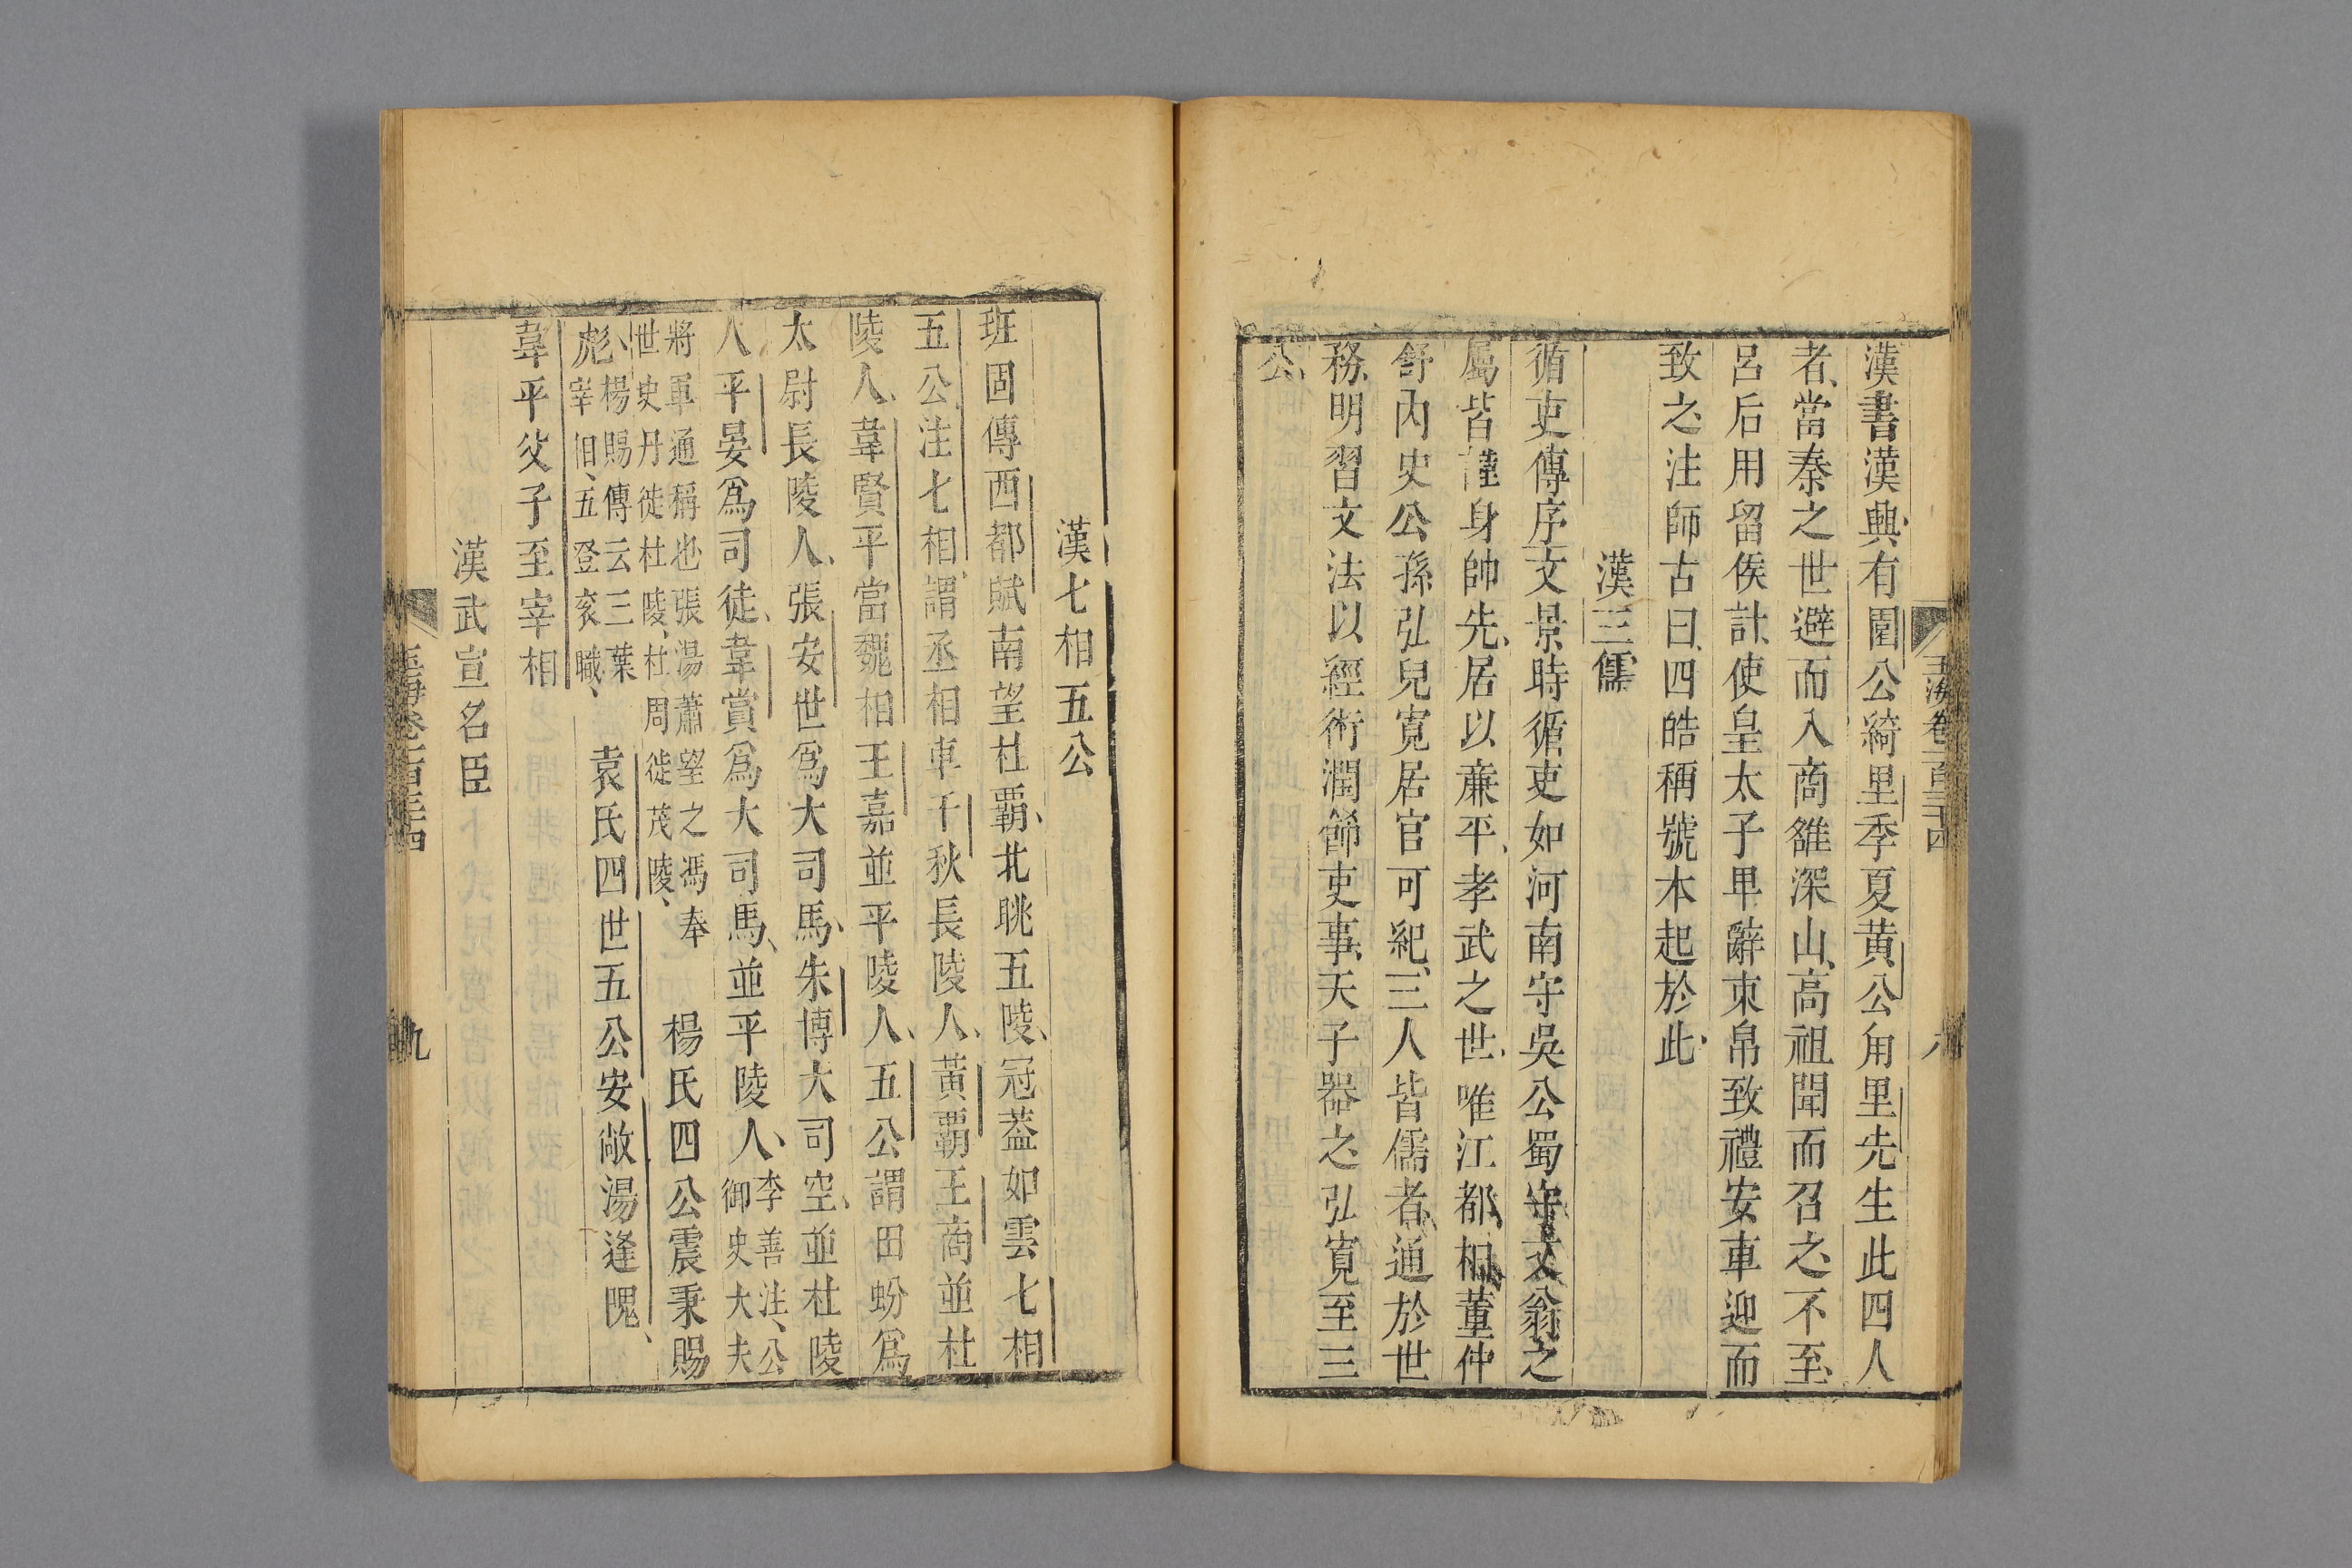 玉海卷一百三十四
八
漢書漢興有園公綺里季夏黃公甪里先生此四人
者當秦之世避而入商雒深山高祖聞而召之不至
呂后用留侯計使皇太子卑辭束帛致禮安車迎而
致之注師古曰四皓稱號本起於此
漢三儒
循吏傳序文景時循吏如河南守吳公蜀守文翁之
屬皆謹身帥先居以廉平孝武之世唯江都相董仲
舒內史公孫弘兒寬居官可紀三人皆儒者通於世
務明習文法以經術潤飾吏事天子器之弘寬至三
公
漢七相五公
班固傳西都賦南望杜霸北眺五陵冠蓋如雲七相
五公注七相謂丞相車千秋長陵人黃霸王商並杜
陵人韋賢平當魏相王嘉並平陵人五公謂田蚡為
太尉長陵人張安世為大司馬朱博大司空並杜陵
人平晏為司徒韋賞為大司馬並平陵人李善注公
御史大夫
將軍通稱也張湯蕭望之馮奉
世史丹徙杜陵杜周徙茂陵
楊氏四公震秉賜
彪楊賜傳云三葉
宰相五登袞職
袁氏四世五公安敞湯逢隗
韋平父子至宰相
漢武宣名臣
玉海卷一百三十四
九